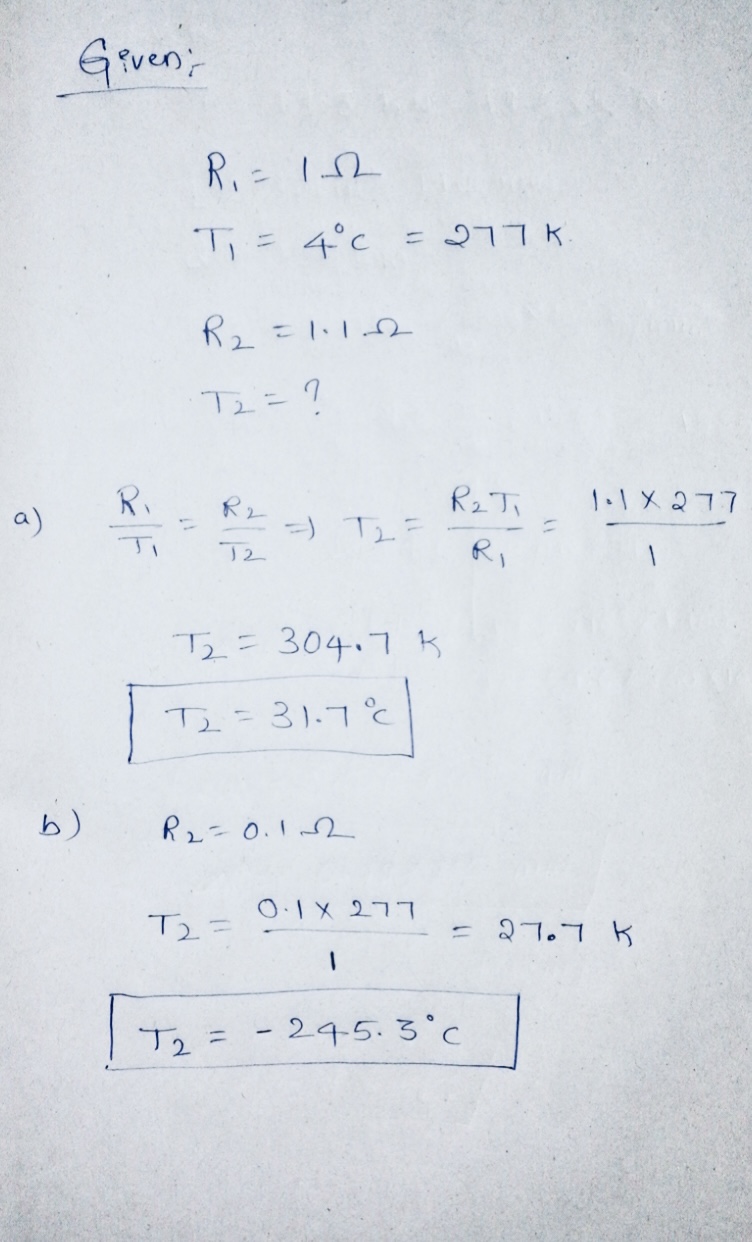 Given:-
R₁ = 1Ω
T₁ = 4°c = 277 K.
R₂ = 1.1 Ω
T₂ = ?
a) R₁/T₁ = R₂/T₂ ⇒ T₂ = R₂T₁/R₁ = 1.1 × 277/1
T₂ = 304.7 K
T₂ = 31.7°c
b) R₂ = 0.1 Ω
T₂ = 0.1 × 277/1 = 27.7 K
T₂ = - 245.3°c